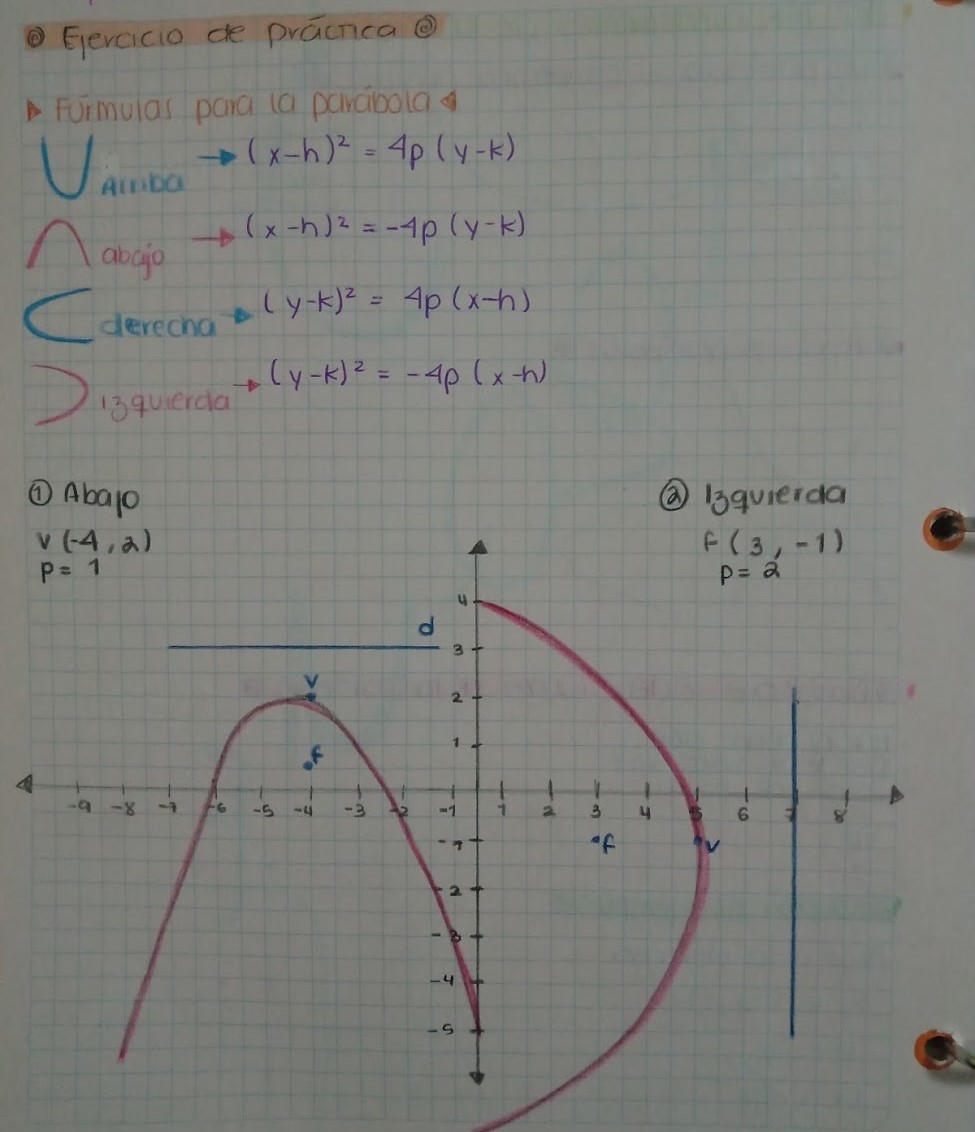 Ejercicio de práctica
Fórmulas para la parábola
Arriba → (x-h)² = 4p (y-k)
abajo → (x-h)² = -4p (y-k)
derecha → (y-k)² = 4p (x-h)
Izquierda → (y-k)² = -4p (x-h)
① Abajo
V (-4, 2)
p= 1
② Izquierda
F (3, -1)
p= 2
4
d
3
V
2
1
f
-9 -8 -7 -6 -5 -4 -3 -2 -1 1 2 3 4 5 6 7 8
-1
f
V
-2
-3
-4
-5